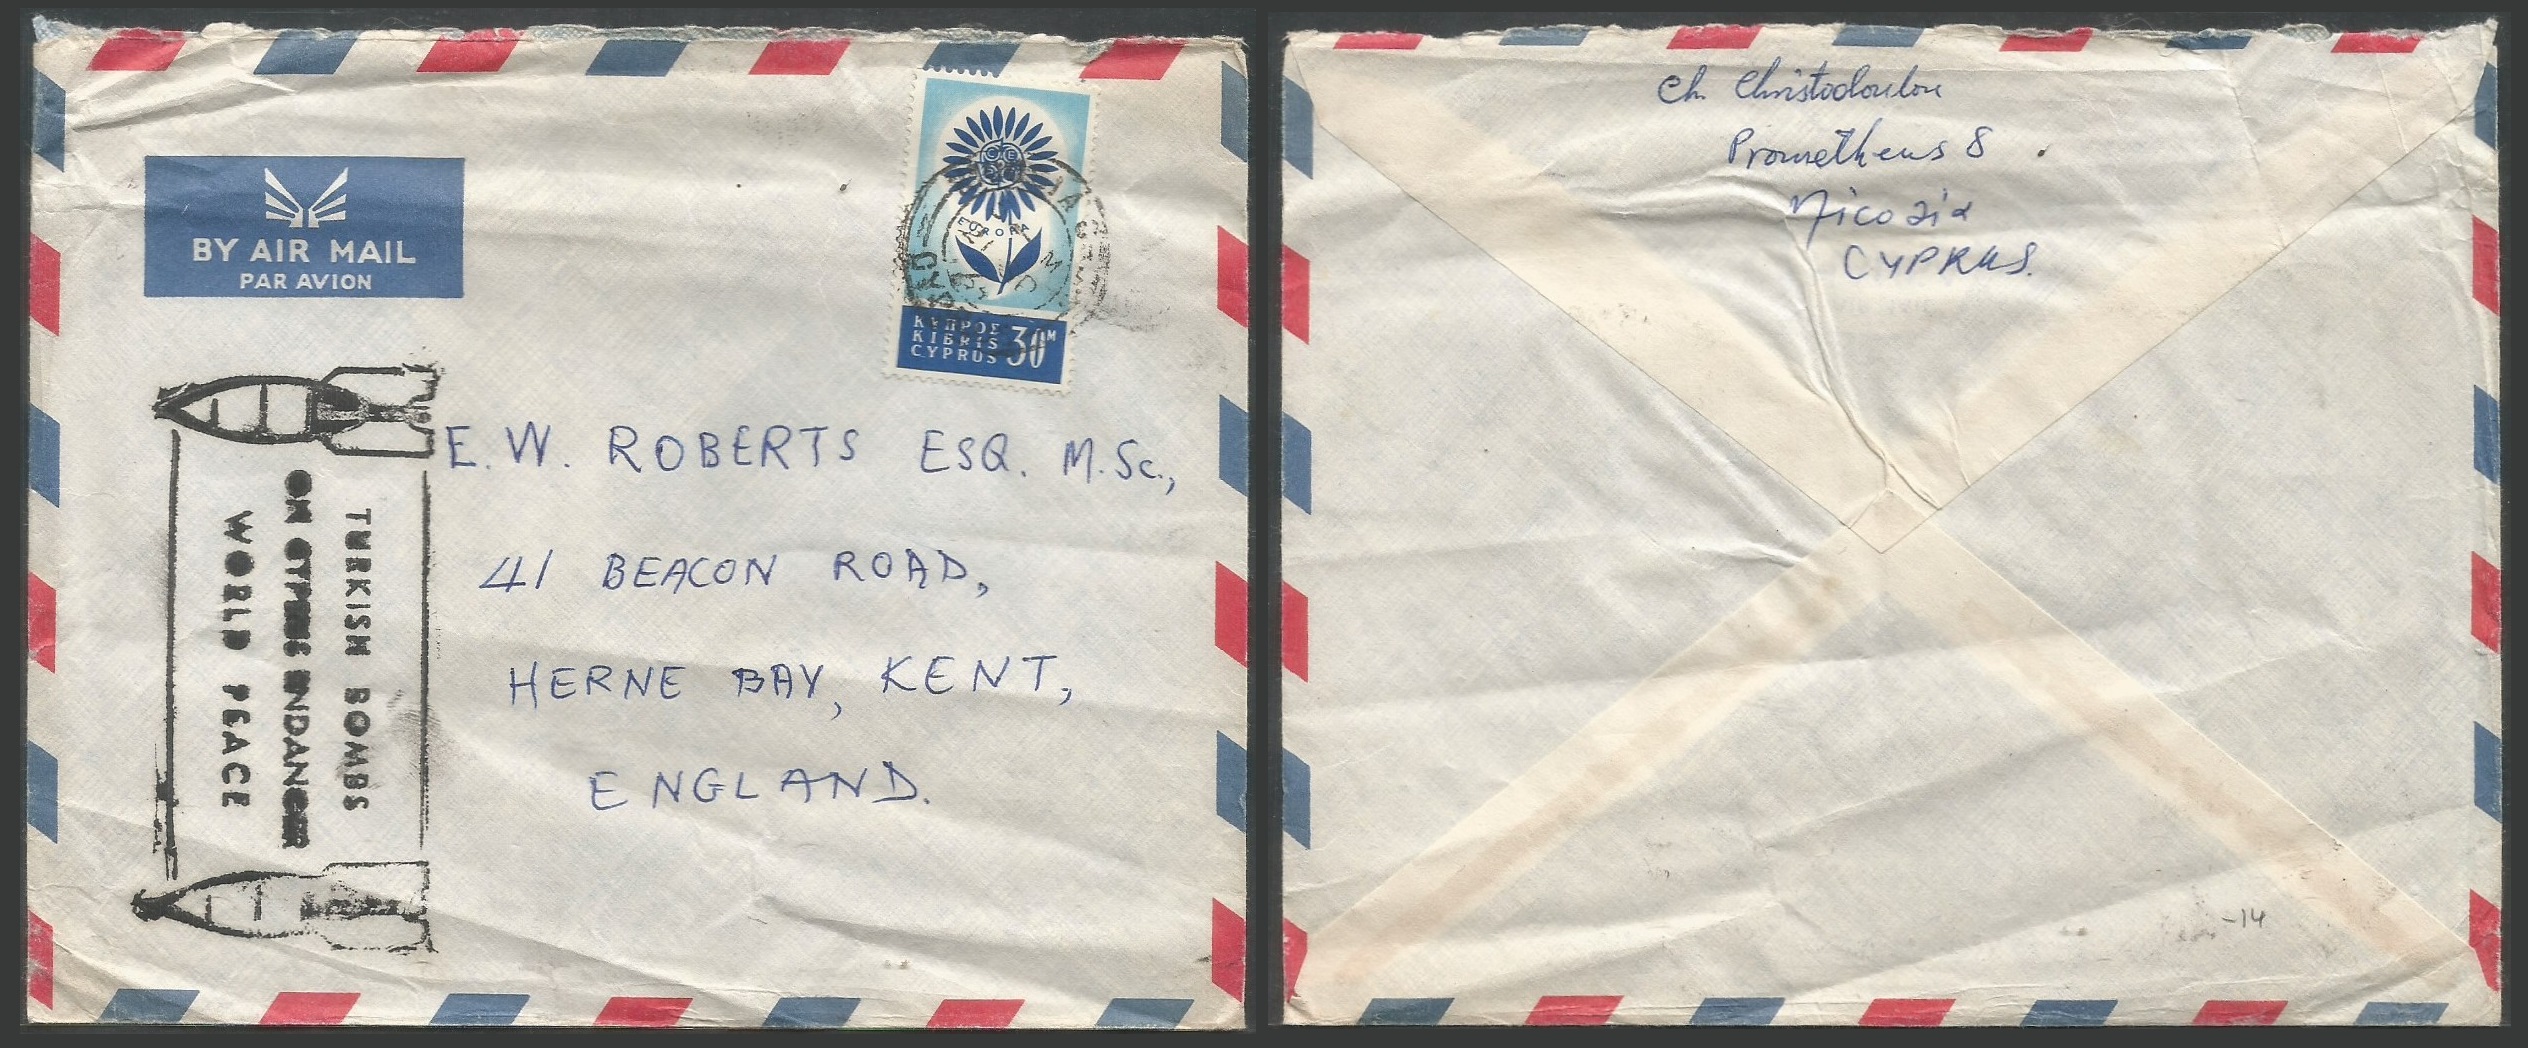 BY AIR MAIL
PAR AVION
EUROPA
ΚΥΠΡΟΣ
KIBRIS
CYPRUS
30M
TURKISH BOMBS
ON CYPRUS ENDANGER
WORLD PEACE
E. W. ROBERTS ESQ. M.Sc.,
41 BEACON ROAD,
HERNE BAY, KENT,
ENGLAND.
Ch Christodoulou
Prometheus 8
Nicosia
CYPRUS.
-14